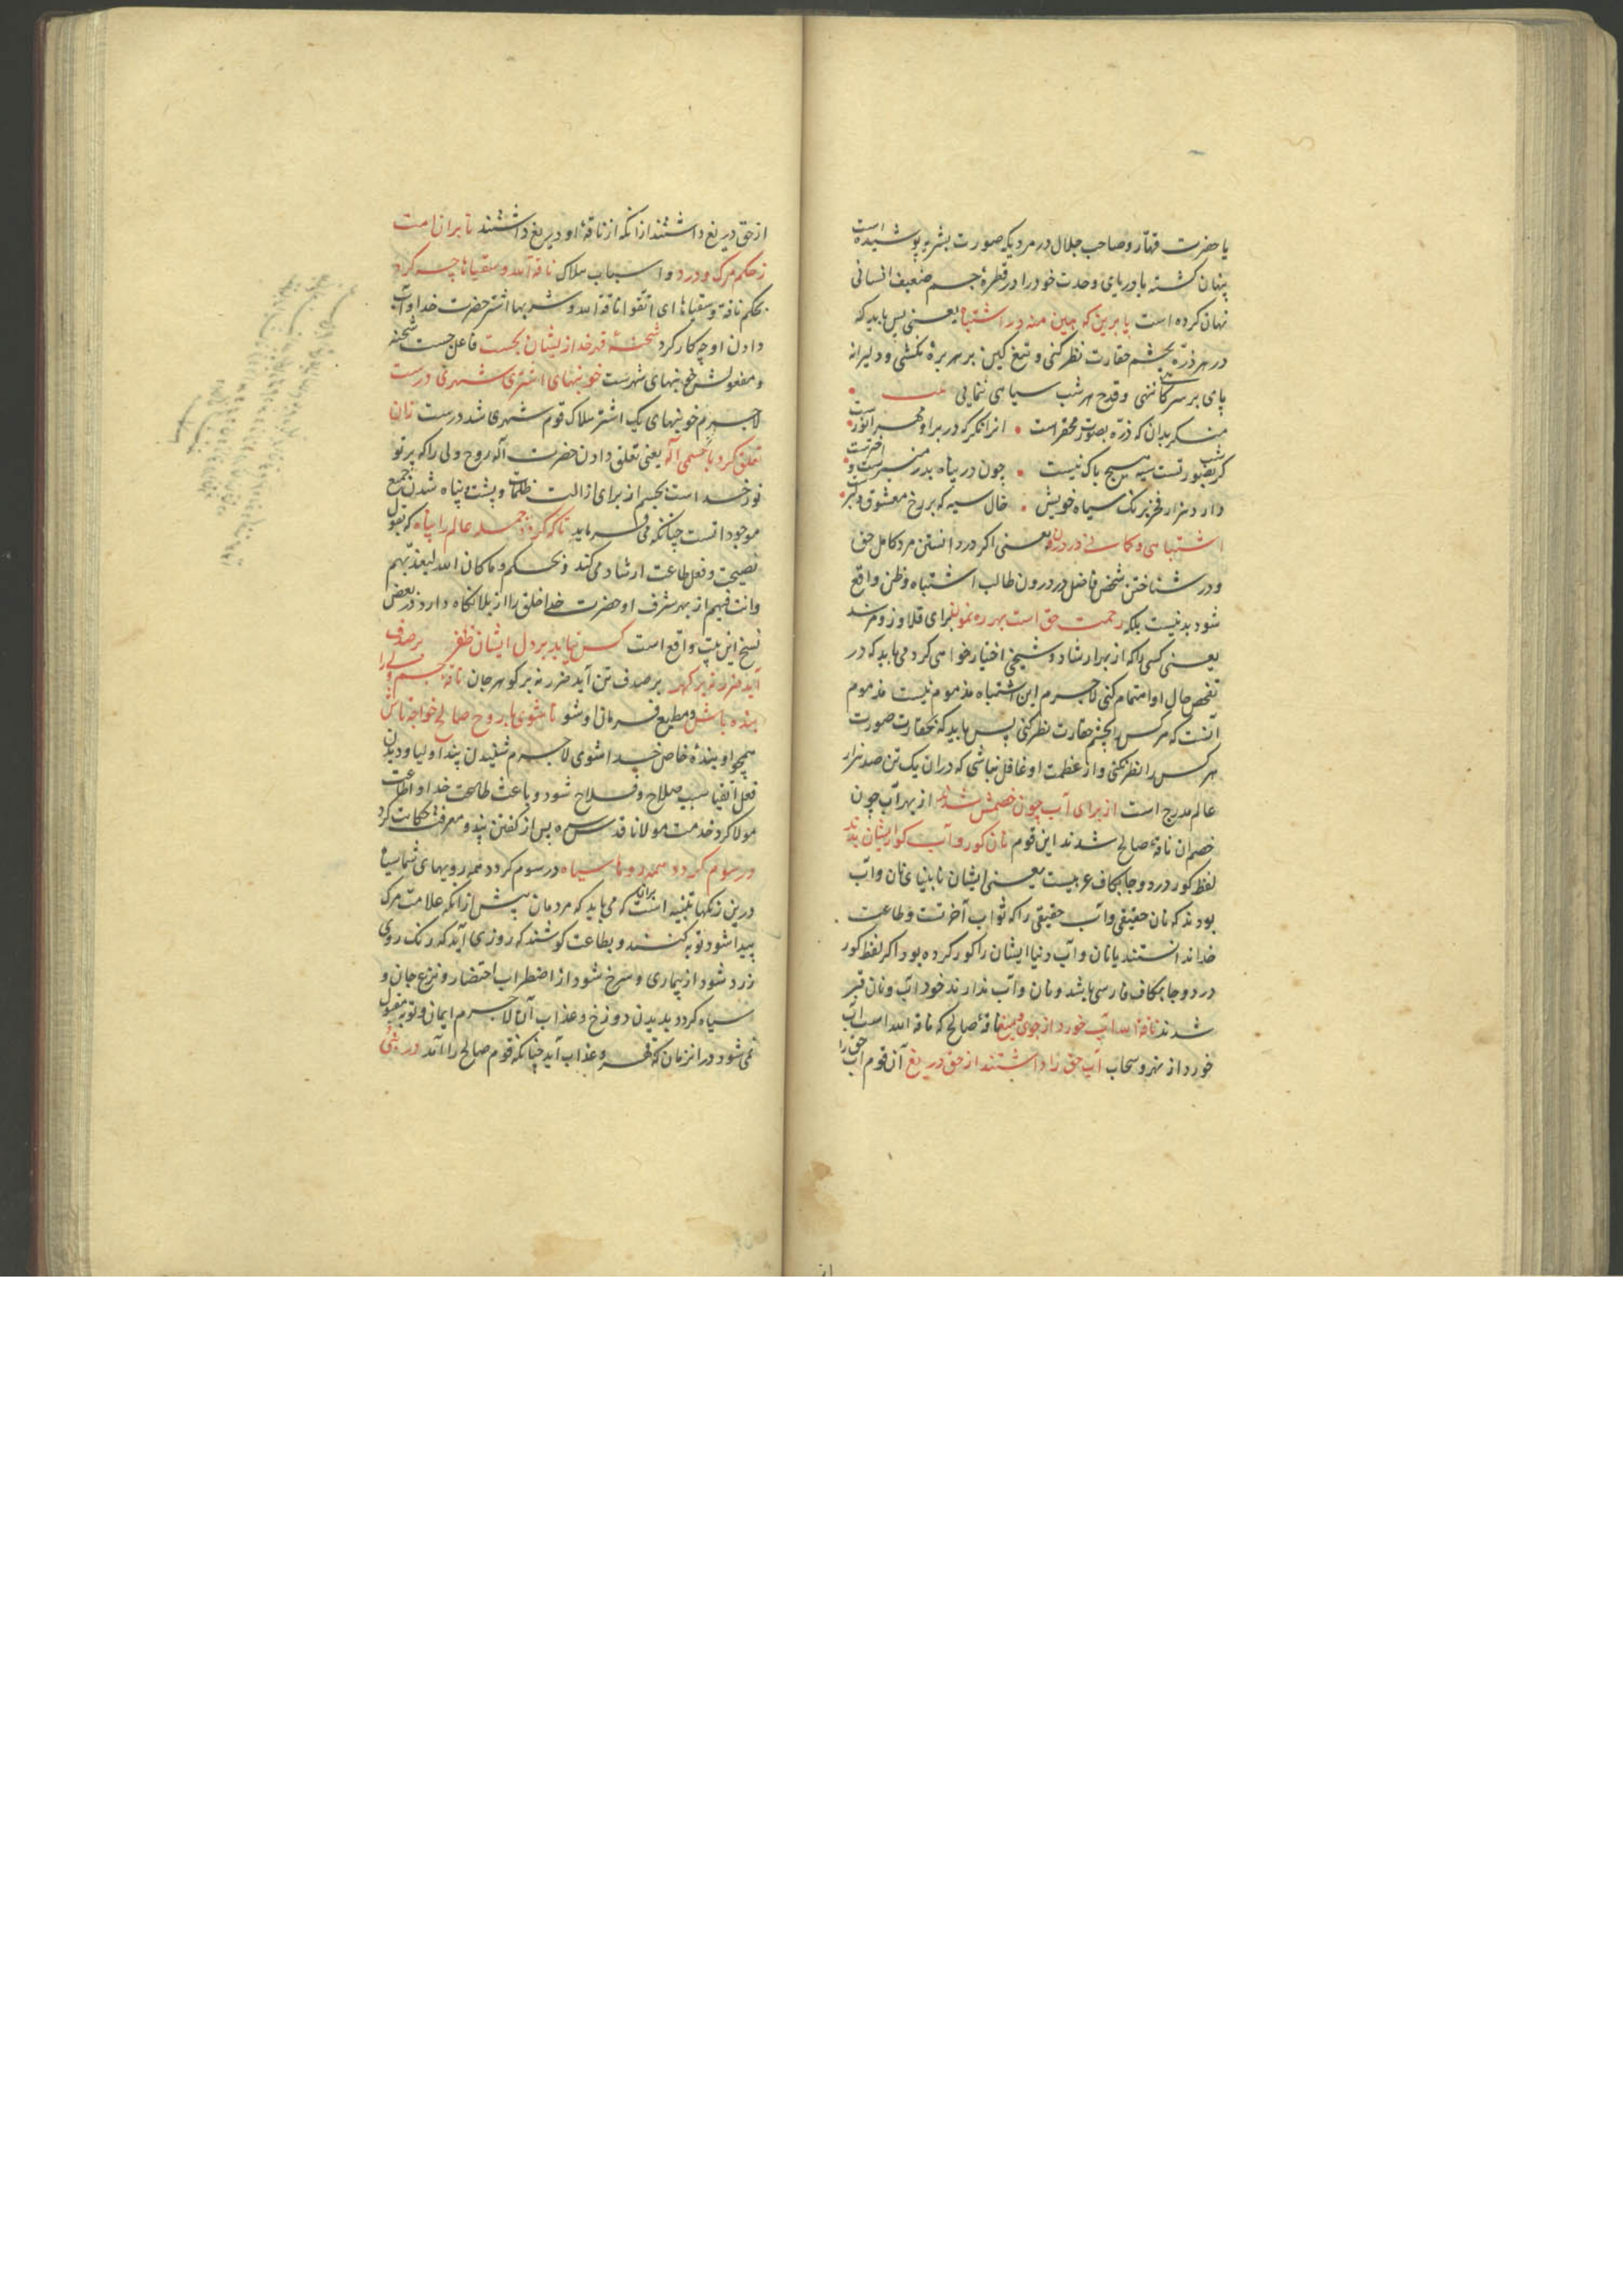 یا حضرت قهار و صاحب جلال در مردیکه صورت بشریه پوشیده است
پنهان کشته یا دریای وحدت خود را در قطرهٔ جسم ضعیف انسانی
نهان کرده است یا برین که هین منه در اشتباه یعنی پس باید که
در هر ذرّه بچشم حقارت نظر کنی و تیغ کین بر هر برهٔ نکشی و دلیرانه
پای بر سر کا ننهی و قدح هر شب سیاهی ننمایی
منکر بدان که ذرّه بصورت محقر است انرا نکر که در بر او مهر انورست
کر شب بصورتست سیه هیچ باک نیست چون در پناه بدر منیرست و اخترست
دارد هزار فخر برنک سیاه خویش خال سیه که بر رخ معشوق دلبرست
اشتباهی و کمانی در درون یعنی اکر در دانستن مرد کامل حق
و در شناختن شخص فاضل در درون طالب اشتباه و ظن واقع
شود بد نیست بلکه رحمت حق است بهر رهنمون برای قلاوز و مرشد
یعنی کسی را که از بهر ارشاد و شیخی اختیار خواهی کرد می باید که در
تفحص حال او اهتمام کنی لاجرم این اشتباه مذموم نیست مذموم
آنست که هر کس را بچشم حقارت نظر کنی پس باید که بحقارت صورت
هر کس را نظر نکنی و از عظمت او غافل نباشی که در ان یک تن صد هزار
عالم مدرج است از برای آب چون خصمش شدند از بهر آب چون
خصمان ناقهٔ صالح شدند این قوم نان کور و آب کور ایشان بدند
لفظ کور در دو جا بکاف عربیست یعنی ایشان نابینای نان و آب
بودند که نان حقیقی و آب حقیقی را که ثواب آخرتست و طاعت
خدا ندانستند یا نان و آب دنیا ایشان را کور کرده بود اکر لفظ کور
در دو جا بکاف فارسی باشد و نان و آب ندارند خود آب و نان قبر
شدند ناقة الله آب خورد از جوی و میغ ناقهٔ صالح که ناقة الله است آب
خورد از نهر و سحاب آب حق را داشتند از حق دریغ آن قوم آب حق را
از حق دریغ داشتند از انکه از ناقهٔ او دریغ داشتند تا بران امت
ز حکم مرک و درد و اسباب هلاک ناقة الله و سقیاها چه کرد
بحکم ناقة و سقیاها ای اتقوا ناقة الله و شربها اشتر حضرت خدا و آب
دادن او چه کار کرد شحنهٔ قهر خدا ز ایشان بجست فاعل جست شحنه
و مفعولش خونبهای شهرست خونبهای اشتری شهری درست
لاجرم خونبهای یک اشتر هلاک قوم شهری شد درست زان
تعلق کرد با جسمی اله یعنی تعلق دادن حضرت اله روح ولی را که پرتو
نور خداست بجسم از برای ازالت ظلمات و پشت و پناه شدن جمیع
موجوداتست چنانکه می فرماید تا که کردد جمله عالم را پناه که بقول
نصیحت و فعل طاعت ارشاد می کند و بحکم و ما کان الله لیعذبهم
و انت فیهم از بهر شرف او حضرت خدا خلق را از بلا نکاه دارد در بعض
نسخ این بیت واقع است کس نیابد بر دل ایشان ظفر بر صدف
آید ضرر نه بر کهر بر صدف تن آید ضرر نه بر کوهر جان ناقهٔ جسم ولی را
بنده باش و مطیع فرمان او شو تا شوی با روح صالح خواجه تاش
همچو او بندهٔ خاص خدا شوی لاجرم شنیدن پند اولیا و دیدن
فعل اتقیا سبب صلاح و فلاح شود و باعث طاعت خدا و اطاعت
مولا کردد خدمت مولانا قدس سره پس از کفتن پند و معرفت حکایت کرد
در سوم کردد همه روها سیاه در سوم کردد همه رویهای شما سیاه
درین رنکها تنبیه است بران که می باید که مردمان پیش از انکه علامت مرک
پیدا شود توبه کنند و بطاعت کوشند که روزی آید که رنک روی
زرد شود از بیماری و سرخ شود از اضطراب احتضار و نزع جان و
سیاه کردد بدیدن دوزخ و عذاب آن لاجرم ایمان و توبه مقبول
نمی شود در انزمان که قهر و عذاب آید چنانکه قوم صالح را آمد در نبی